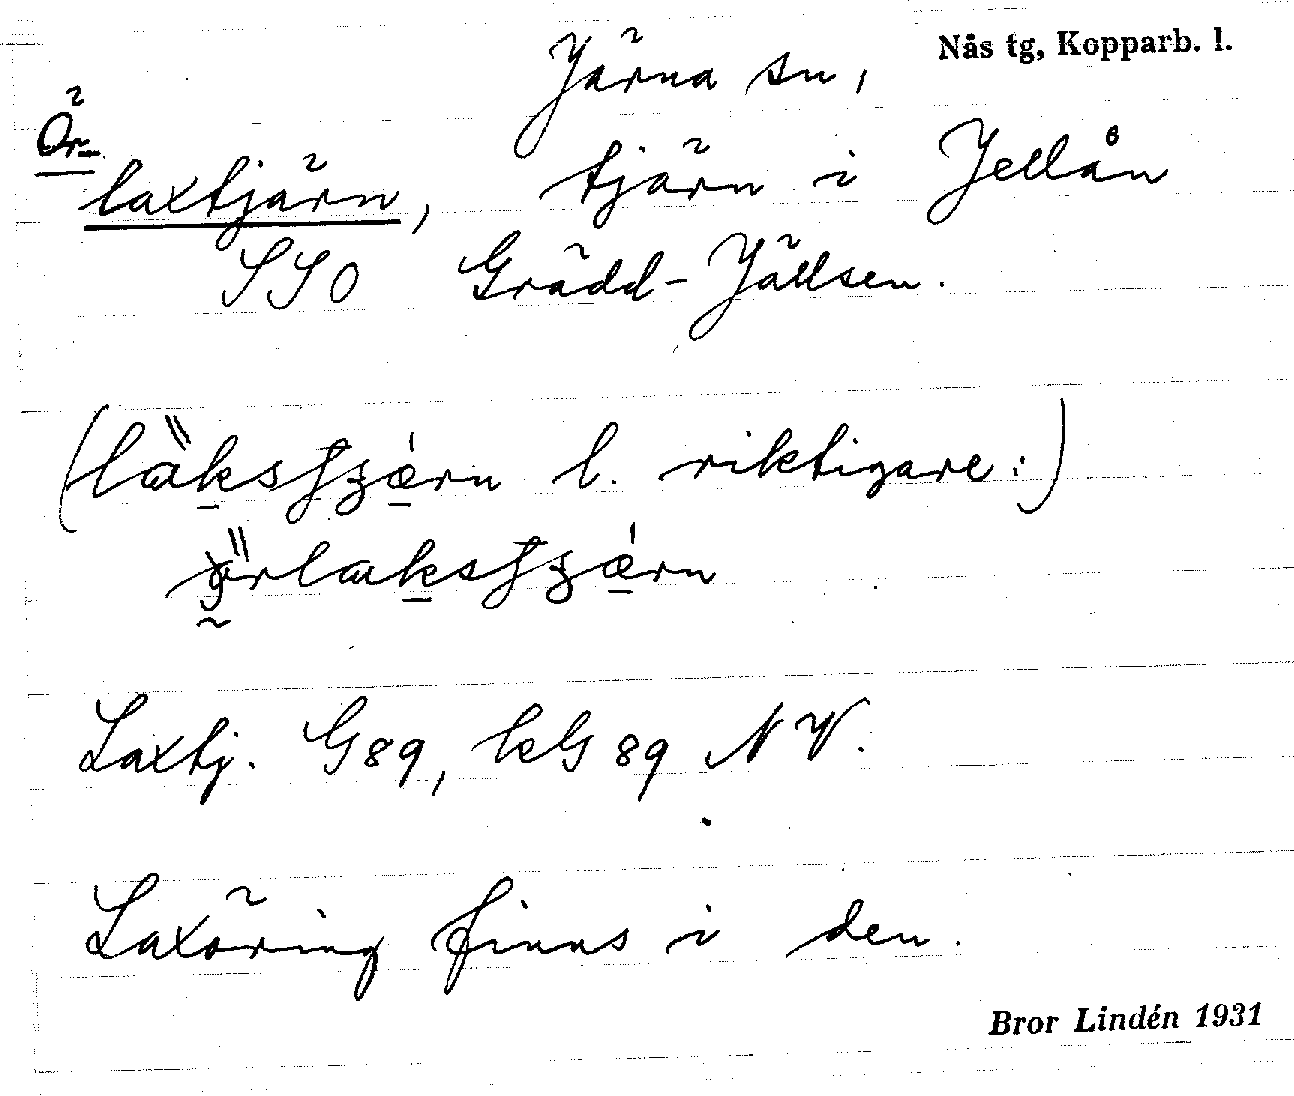 Järna sn, Nås tg, Kopparb. l.
Ör-
laxtjärn, tjärn i Jellån
SSO Grädd-Jällsen.
l. riktigare:)
Laxtj. G89, kG 89 NV.
Laxöring finns i den.
Bror Lindén 1931